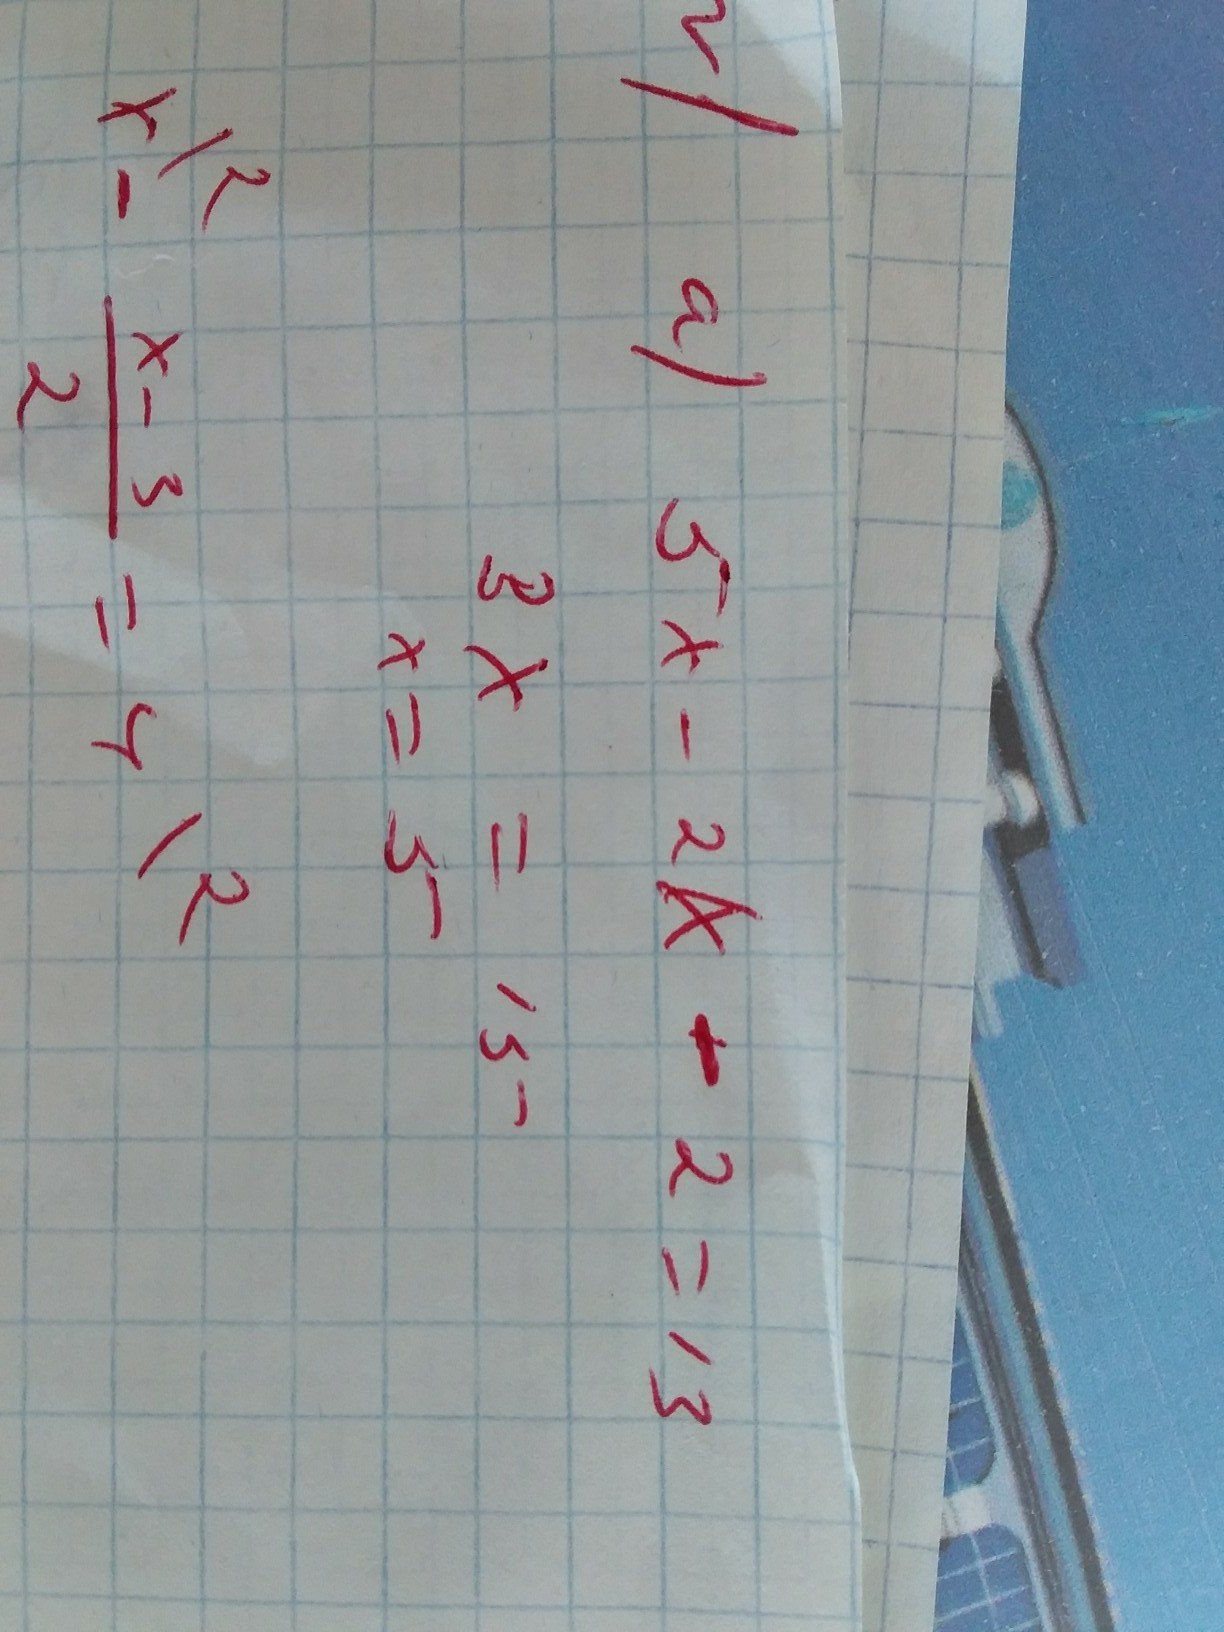 а) 5x - 2x - 2 = 13
3x = 15
x = 5
x\2 - x-3/2 = 4\2